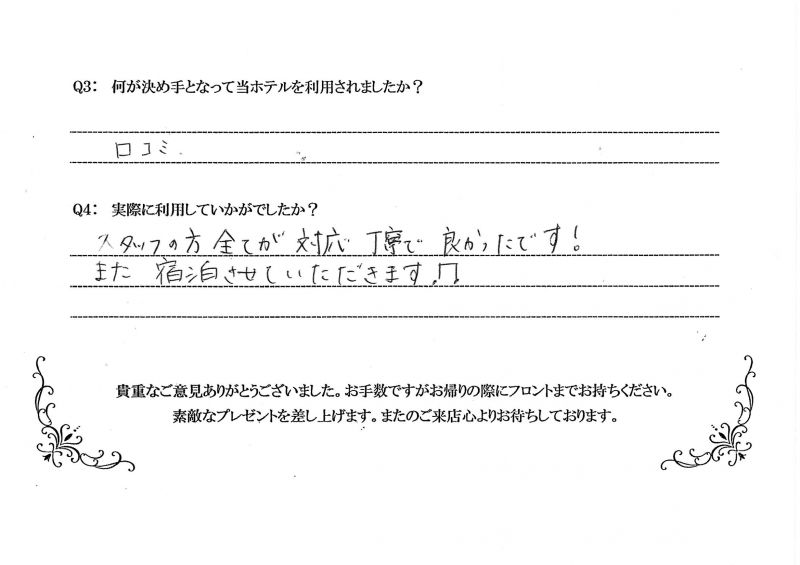 Q3： 何が決め手となって当ホテルを利用されましたか？
口コミ.
Q4： 実際に利用していかがでしたか？
スタッフの方全てが 対応 丁寧で 良かったです！
また 宿泊させていただきます♫
貴重なご意見ありがとうございました。お手数ですがお帰りの際にフロントまでお持ちください。
素敵なプレゼントを差し上げます。またのご来店心よりお待ちしております。